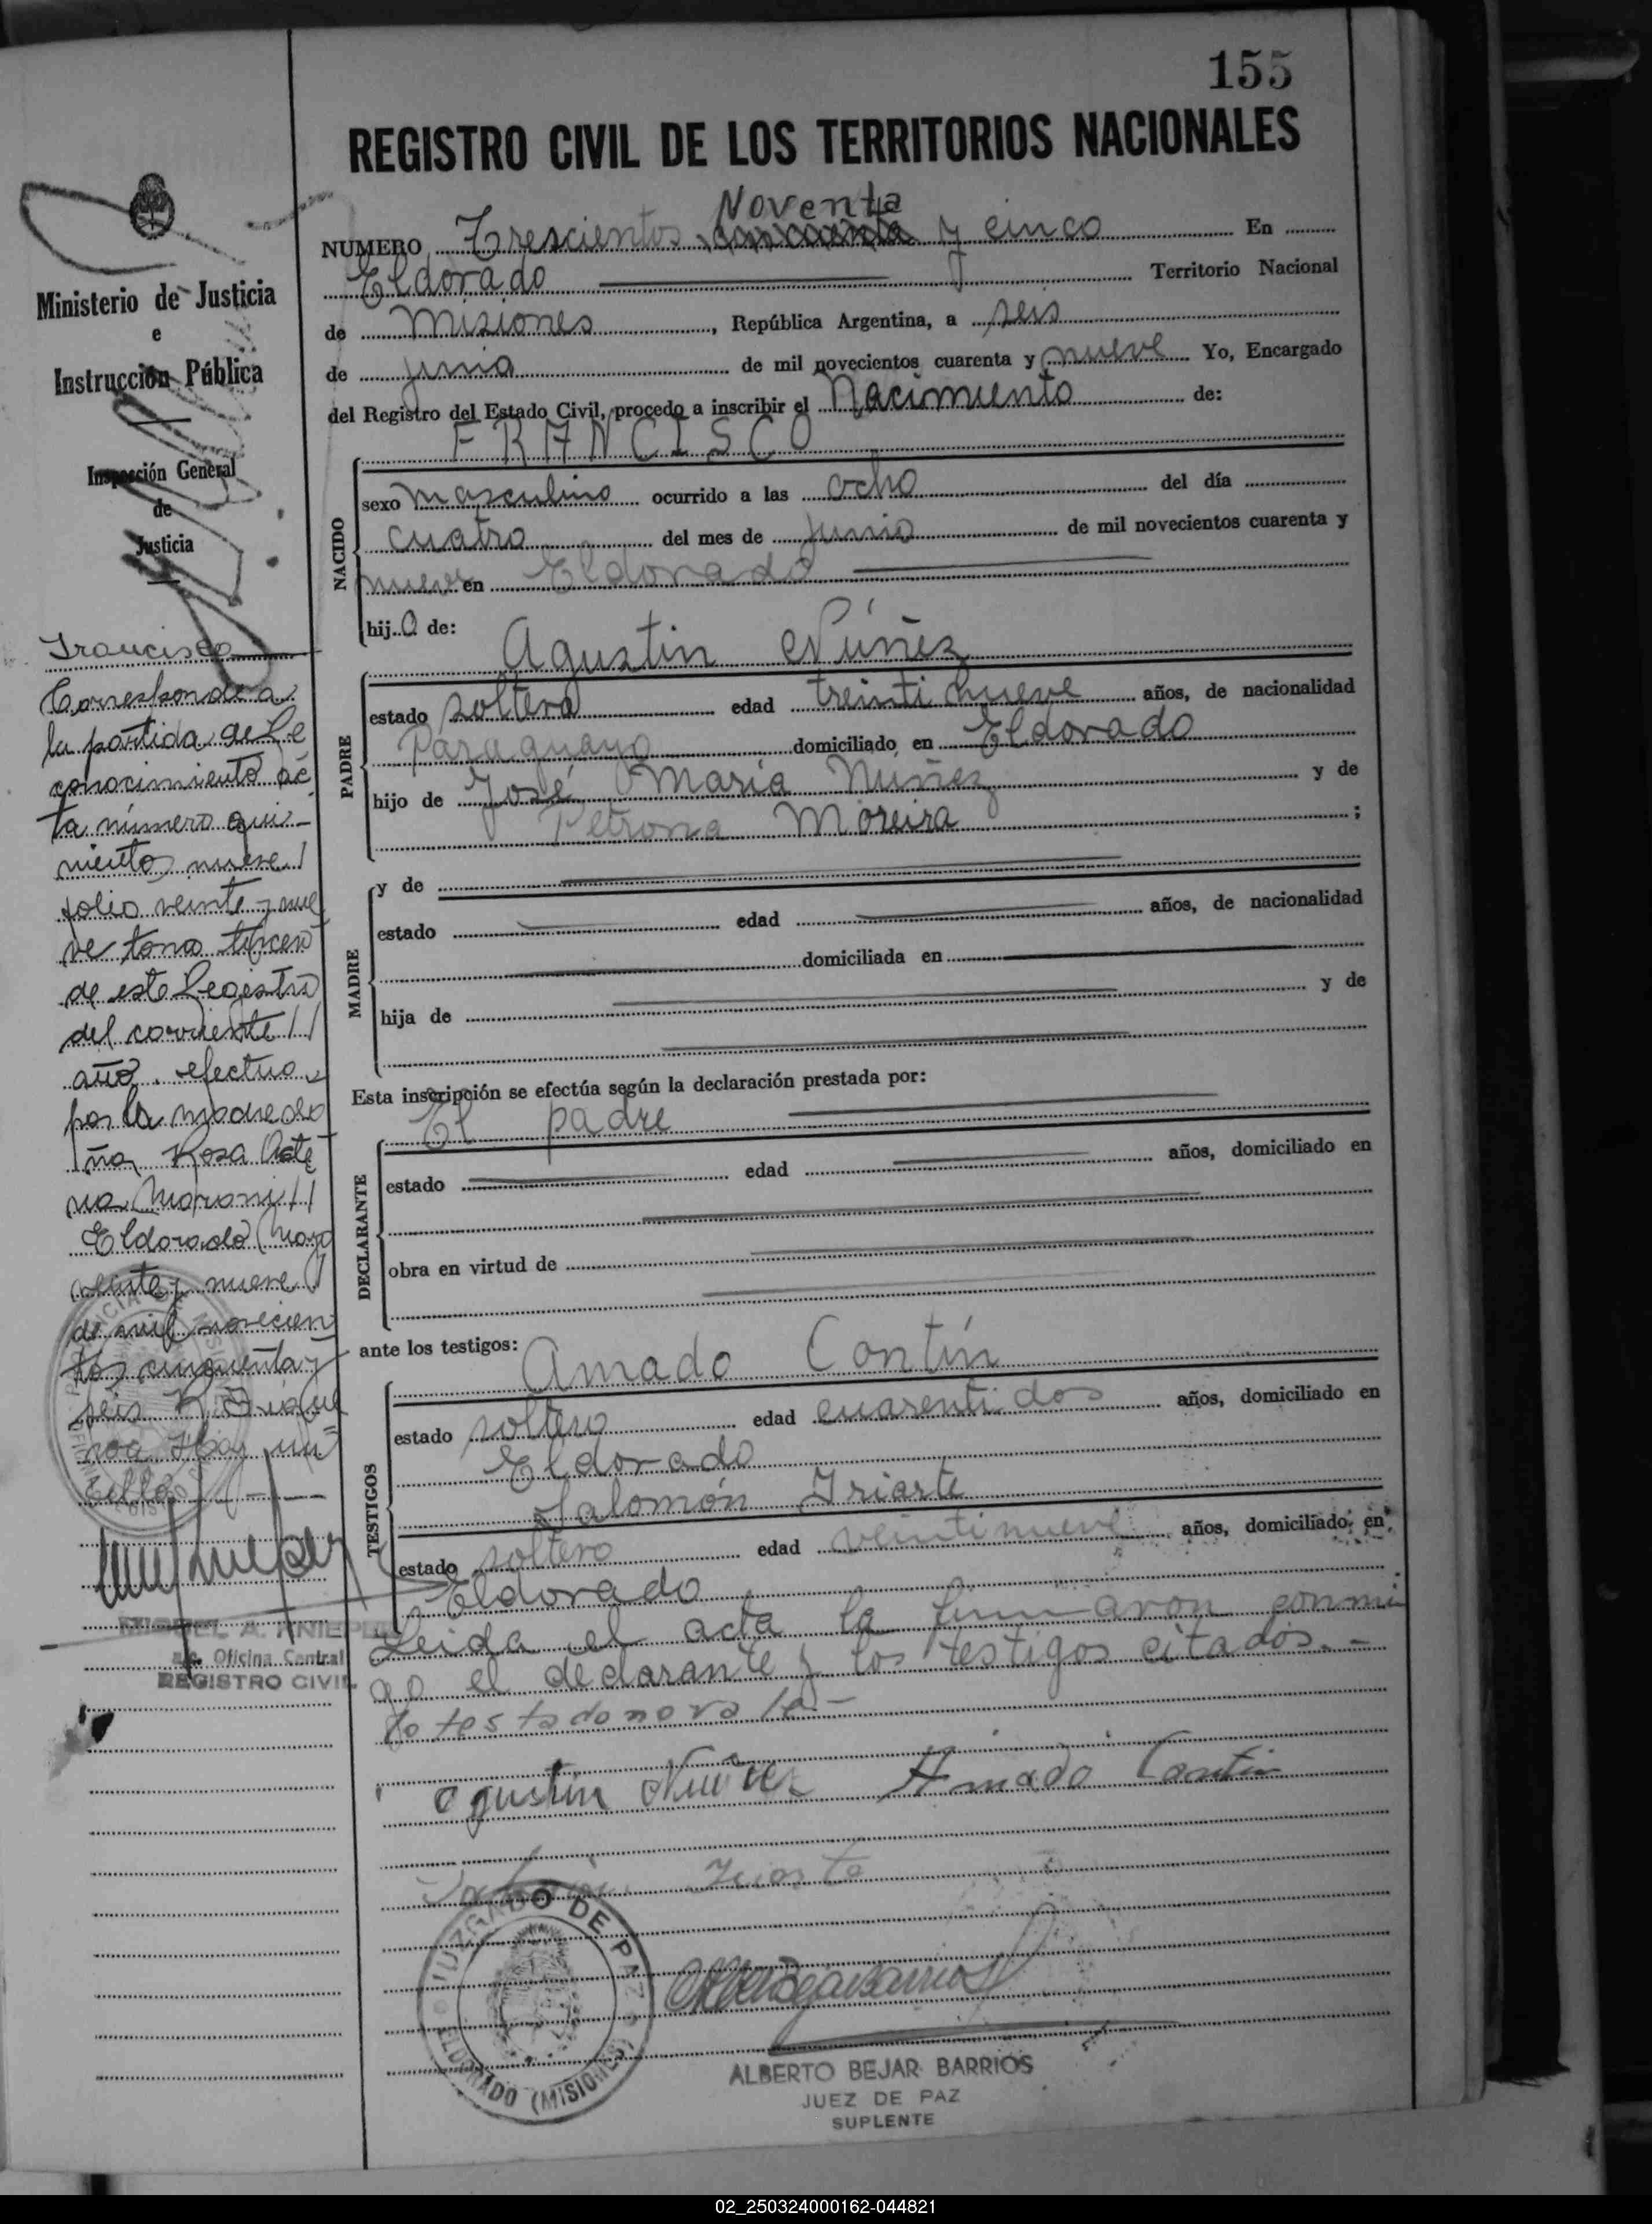 155
REGISTRO CIVIL DE LOS TERRITORIOS NACIONALES
Noventa
NUMERO Trescientos cincuenta y cinco En
Eldorado Territorio Nacional
de Misiones, República Argentina, a seis
de junio de mil novecientos cuarenta y nueve Yo, Encargado
del Registro del Estado Civil, procedo a inscribir el Nacimiento de:
FRANCISCO
NACIDO
sexo masculino ocurrido a las ocho del día
cuatro del mes de junio de mil novecientos cuarenta y
nueve en Eldorado
hijo de:
Agustin Núñez
PADRE
estado soltero edad treinti nueve años, de nacionalidad
Paraguayo domiciliado en Eldorado
hijo de José María Núñez y de
Petrona Moreira ;
MADRE
y de
estado edad años, de nacionalidad
domiciliada en
hija de y de
Esta inscripción se efectúa según la declaración prestada por:
El padre
DECLARANTE
estado edad años, domiciliado en
obra en virtud de
ante los testigos:
Amado Contín
TESTIGOS
estado soltero edad cuarenti dos años, domiciliado en
Eldorado
Salomón Iriarte
estado soltero edad veintinueve años, domiciliado en
Eldorado
Leida el acta la firmaron conmi
go el declarante y los testigos citados.-
Lo testado no vale-
Agustin Nuñez Amado Contin
Iriarte
JUZGADO DE PAZ
ELDORADO (MISIONES)
ALBERTO BEJAR BARRIOS
JUEZ DE PAZ
SUPLENTE
Ministerio de Justicia
e
Instrucción Pública
Inspección General
de
Justicia
Francisco
Corresponde a
la partida de Re
conocimiento ac
ta número qui-
nientos nueve
folio veinte y nue
ve tomo tercero
de este Registro
del corriente
año. efectuo
por la madre do
ña Rosa
Eldorado Mayo
veinte y nueve
de mil novecien
tos cincuenta y
seis
Hay un
sello
MIGUEL A. KNIEPER
Oficina Central
REGISTRO CIVIL
02_250324000162-044821